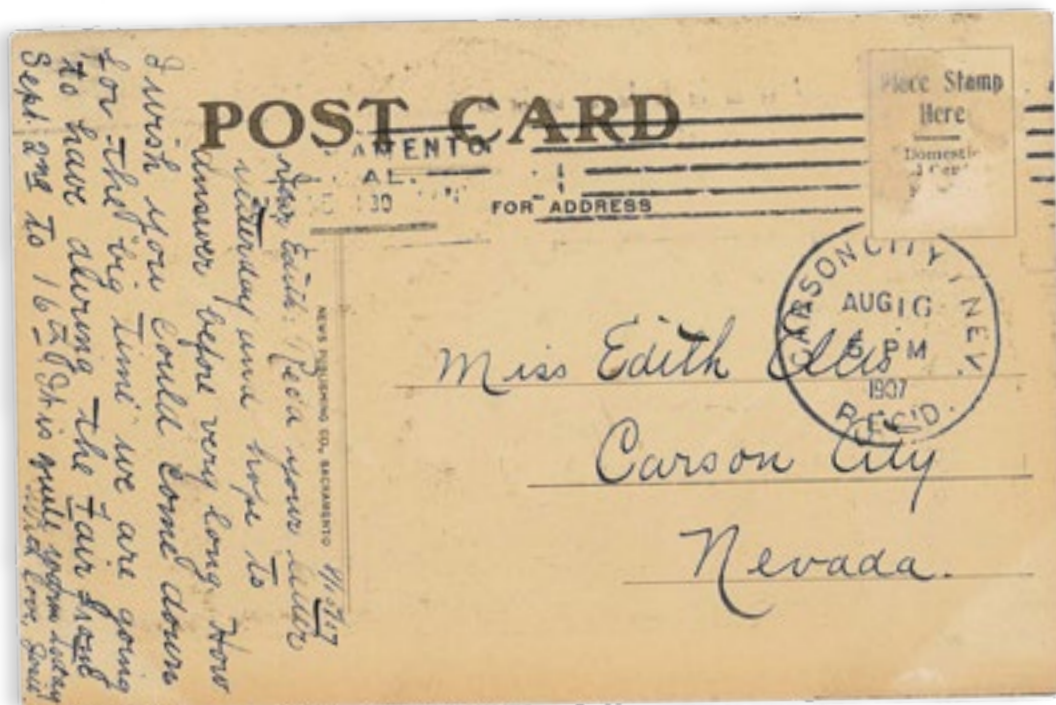 POST CARD
Place Stamp
Here
Domestic
AMENTO
AL.
FOR ADDRESS
CARSON CITY, NEV.
AUG 16
5 PM
1907
REC'D.
Miss Edith Ellis
Carson City
Nevada.
NEWS PUBLISHING CO., SACRAMENTO
Dear Edith: Rec'd your letter
yesterday and hope to
answer before very long. How
I wish you could come down
for the big time we are going
to have during the Fair from
Sept 2nd to 16th. It is quite warm today
With love,